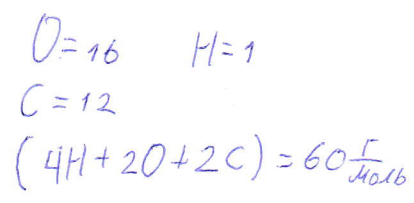 O=16 H=1
C=12
(4H+2O+2C)=60 г/моль